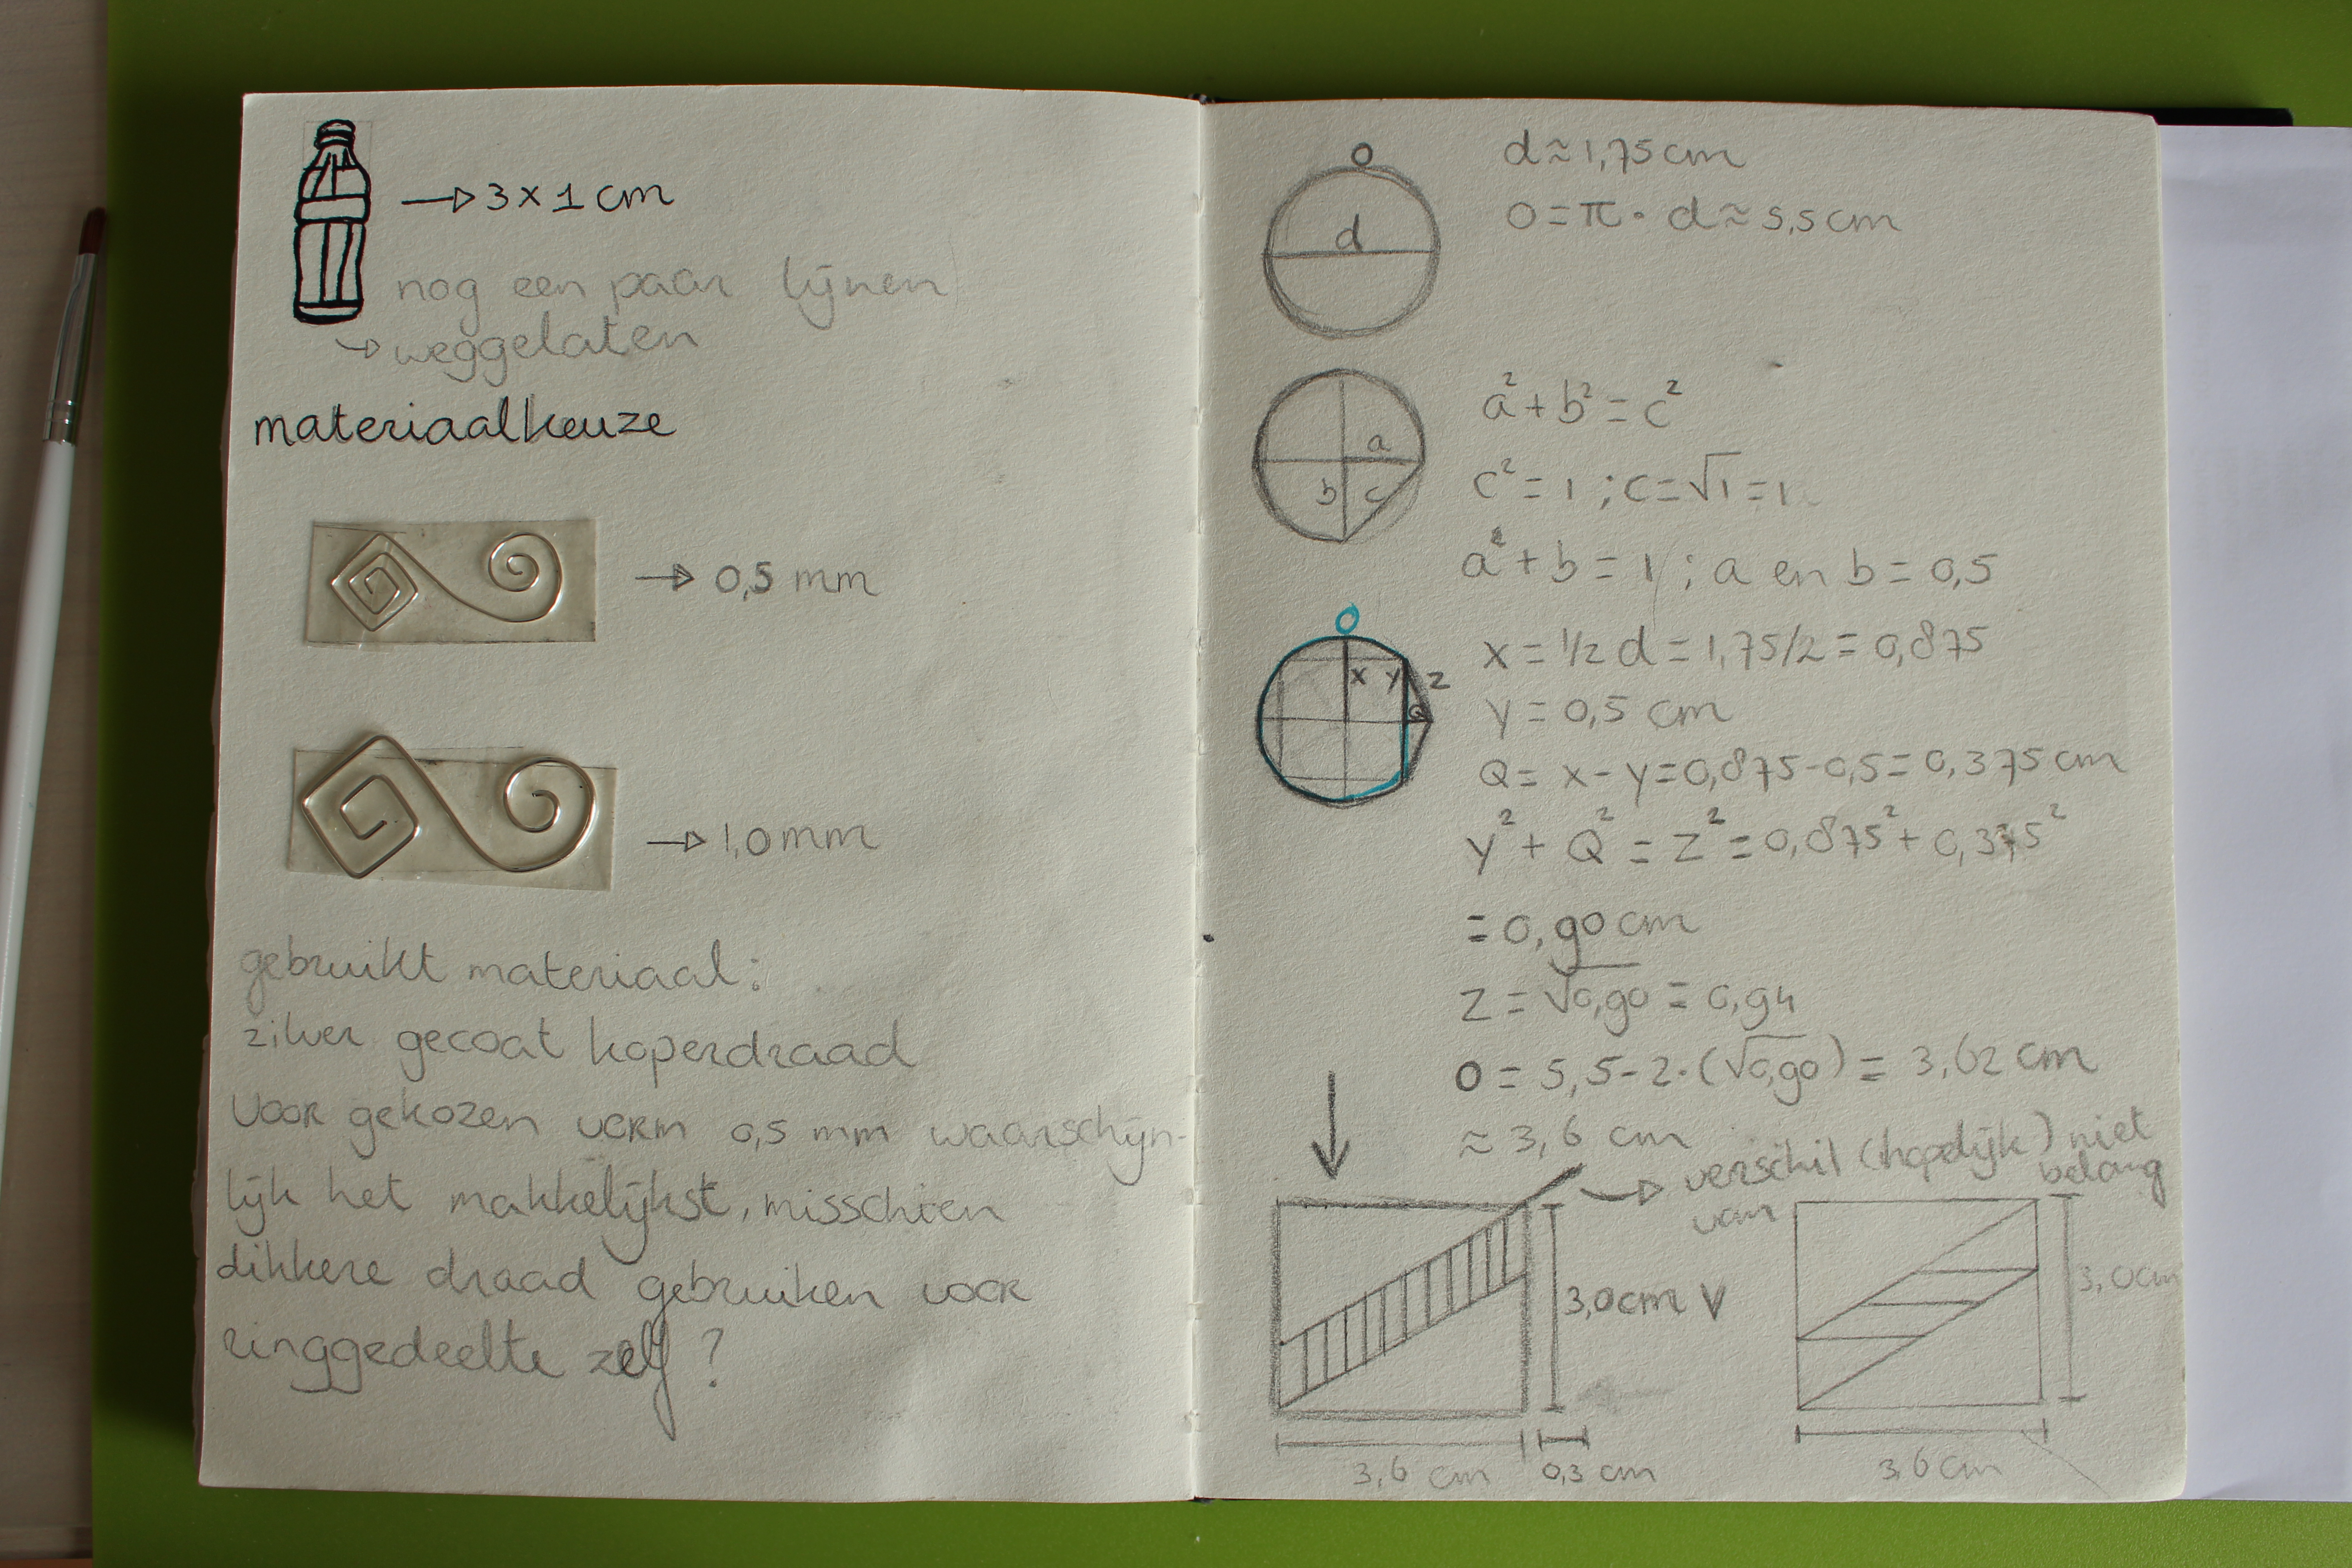 → 3 x 1 cm
nog een paar lijnen
→ weggelaten
materiaalkeuze
→ 0,5 mm
→ 1,0 mm
gebruikt materiaal:
zilver gecoat koperdraad
voor gekozen vorm 0,5 mm waarschijn-
lijk het makkelijkst, misschien
dikkere draad gebruiken voor
ringgedeelte zelf?
O
d
d ≈ 1,75 cm
O = π · d ≈ 5,5 cm
a
b c
a² + b² = c²
c² = 1 ; c = √1 = 1
a² + b = 1 ; a en b = 0,5
O
x y z
Q
x = 1/2 d = 1,75/2 = 0,875
y = 0,5 cm
Q = x - y = 0,875 - 0,5 = 0,375 cm
y² + Q² = z² = 0,875² + 0,375²
= 0,90 cm
z = √0,90 = 0,94
O = 5,5 - 2 · (√0,90) = 3,62 cm
≈ 3,6 cm
→ verschil (hopelijk) niet
van belang
3,0 cm V
3,6 cm
0,3 cm
3,0 cm
3,6 cm